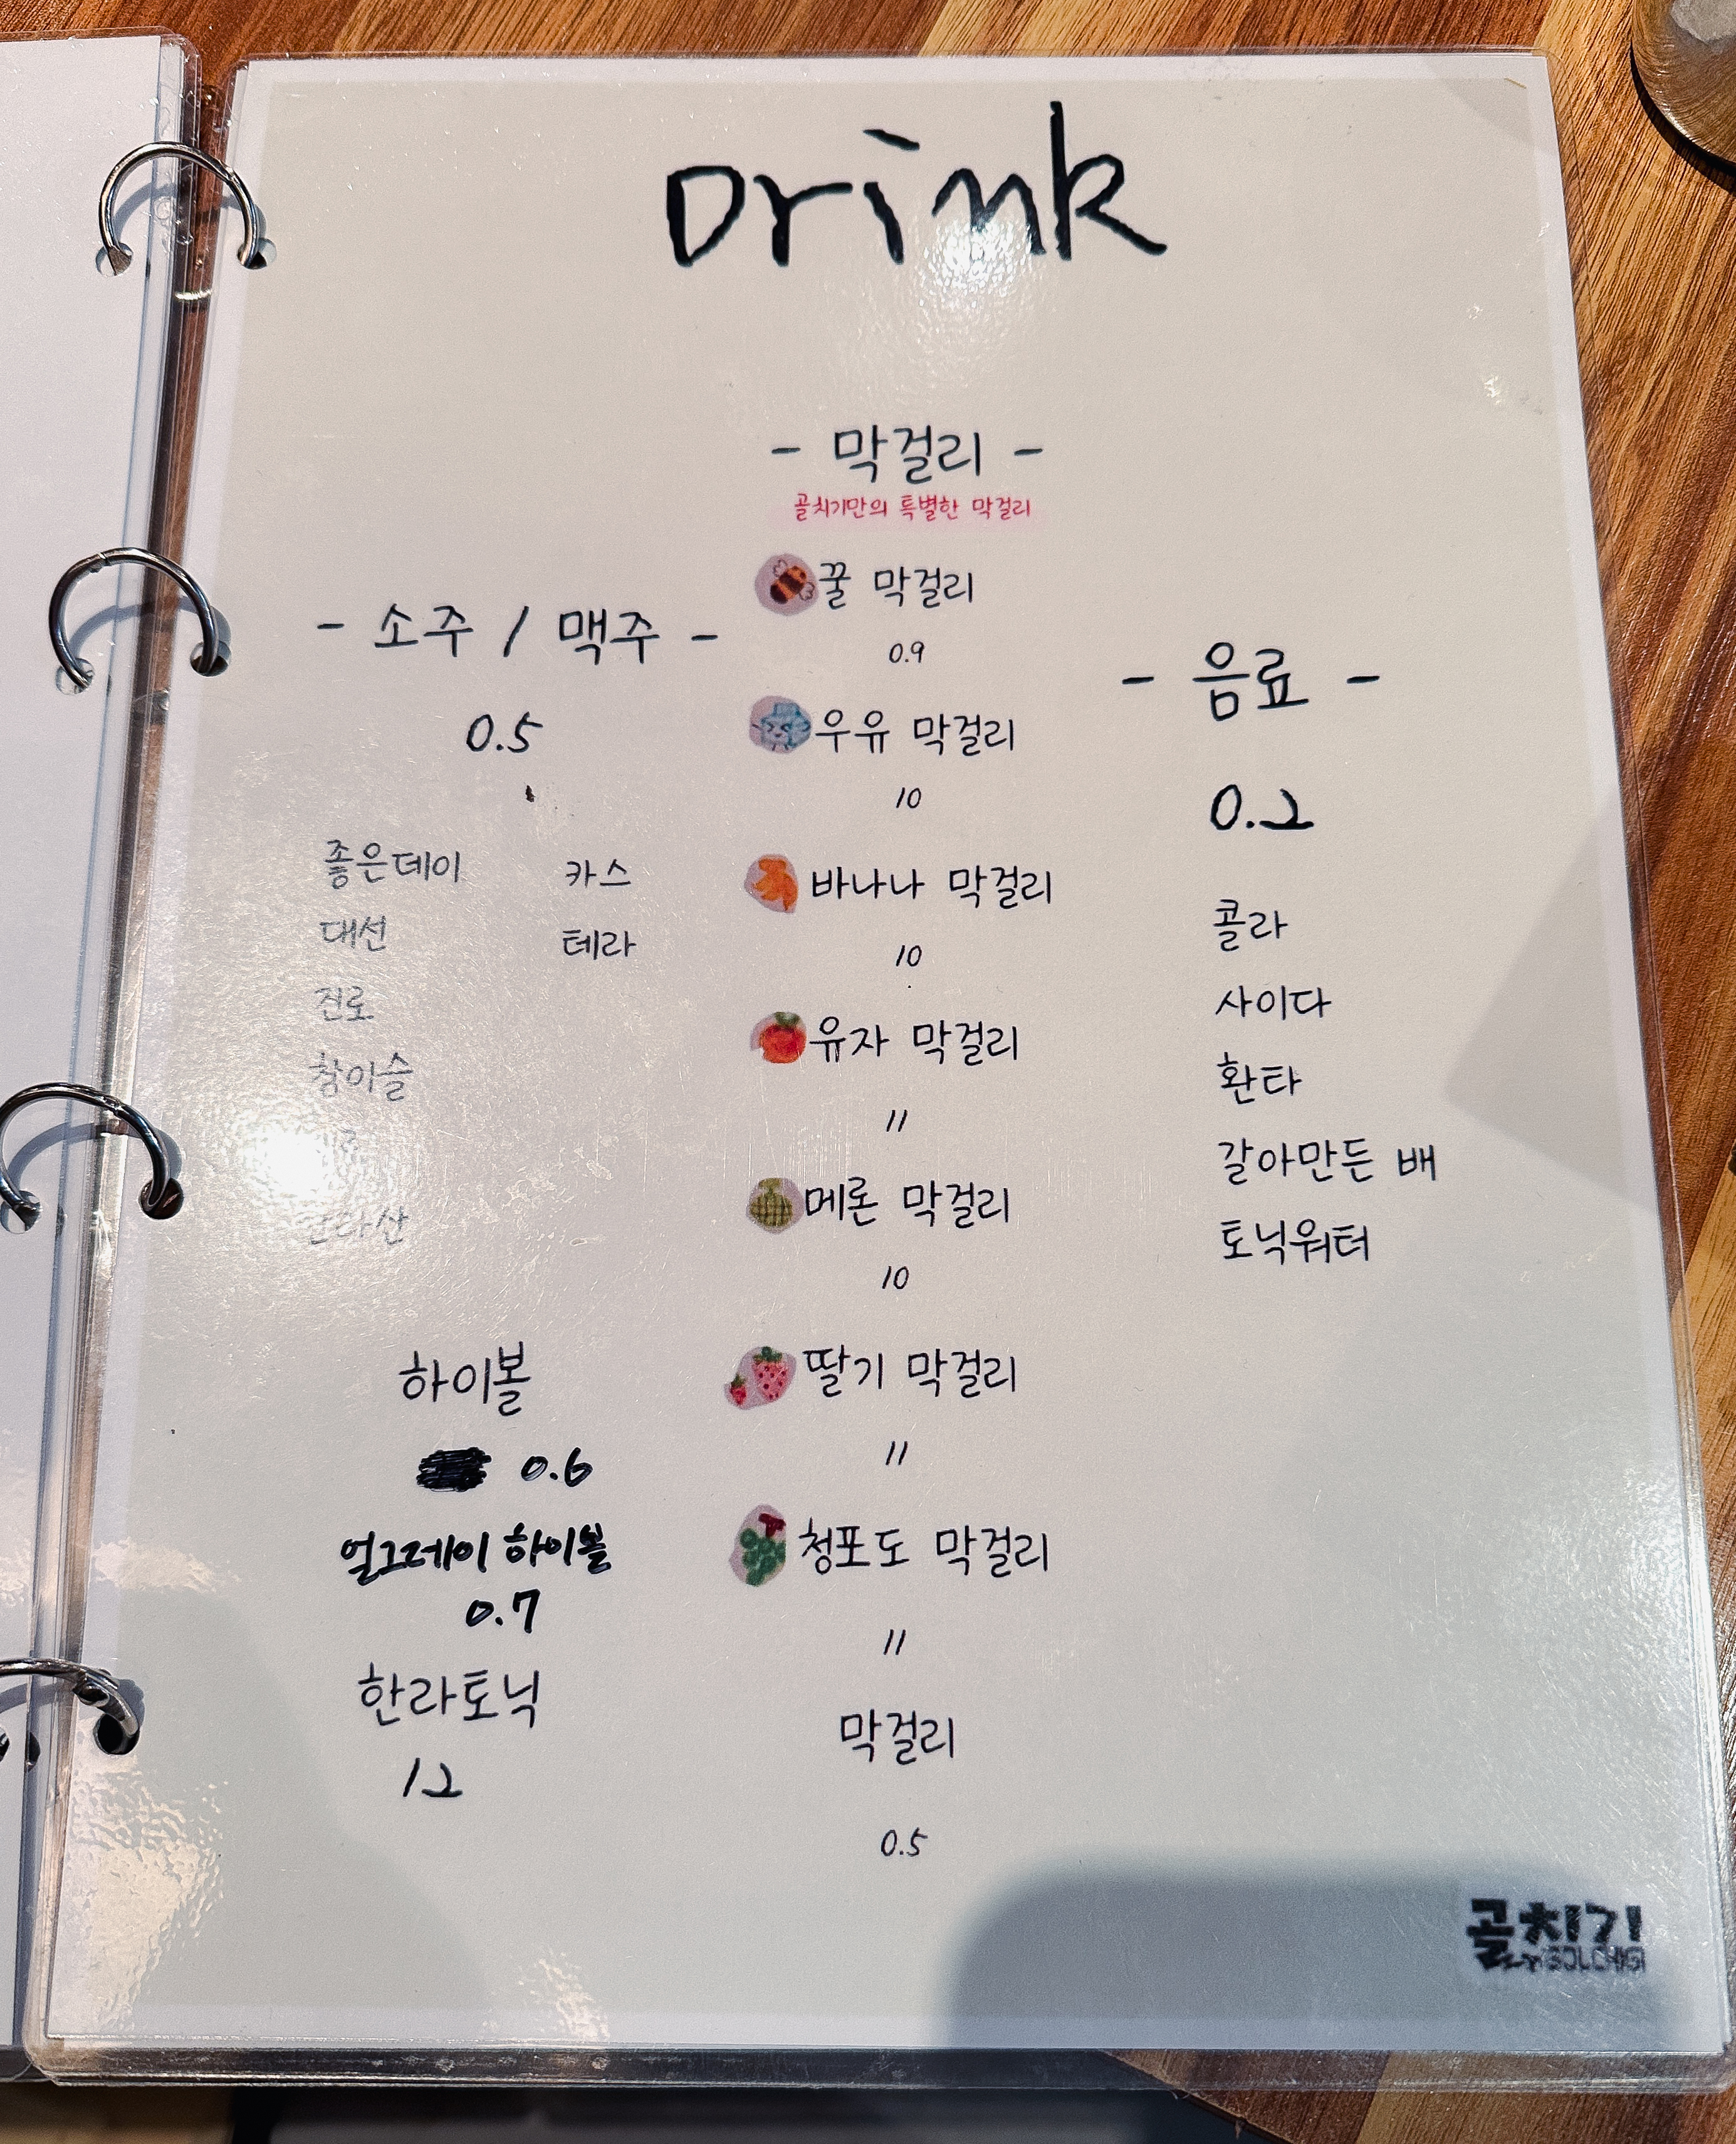 Drink
- 막걸리 -
골치기만의 특별한 막걸리
꿀 막걸리
0.9
우유 막걸리
10
바나나 막걸리
10
유자 막걸리
〃
메론 막걸리
10
딸기 막걸리
〃
청포도 막걸리
〃
막걸리
0.5
- 소주 / 맥주 -
0.5
좋은데이
대선
진로
참이슬
카스
테라
하이볼
0.6
얼그레이 하이볼
0.7
한라토닉
12
- 음료 -
0.2
콜라
사이다
환타
갈아만든 배
토닉워터
골치기
GOLCHIGI